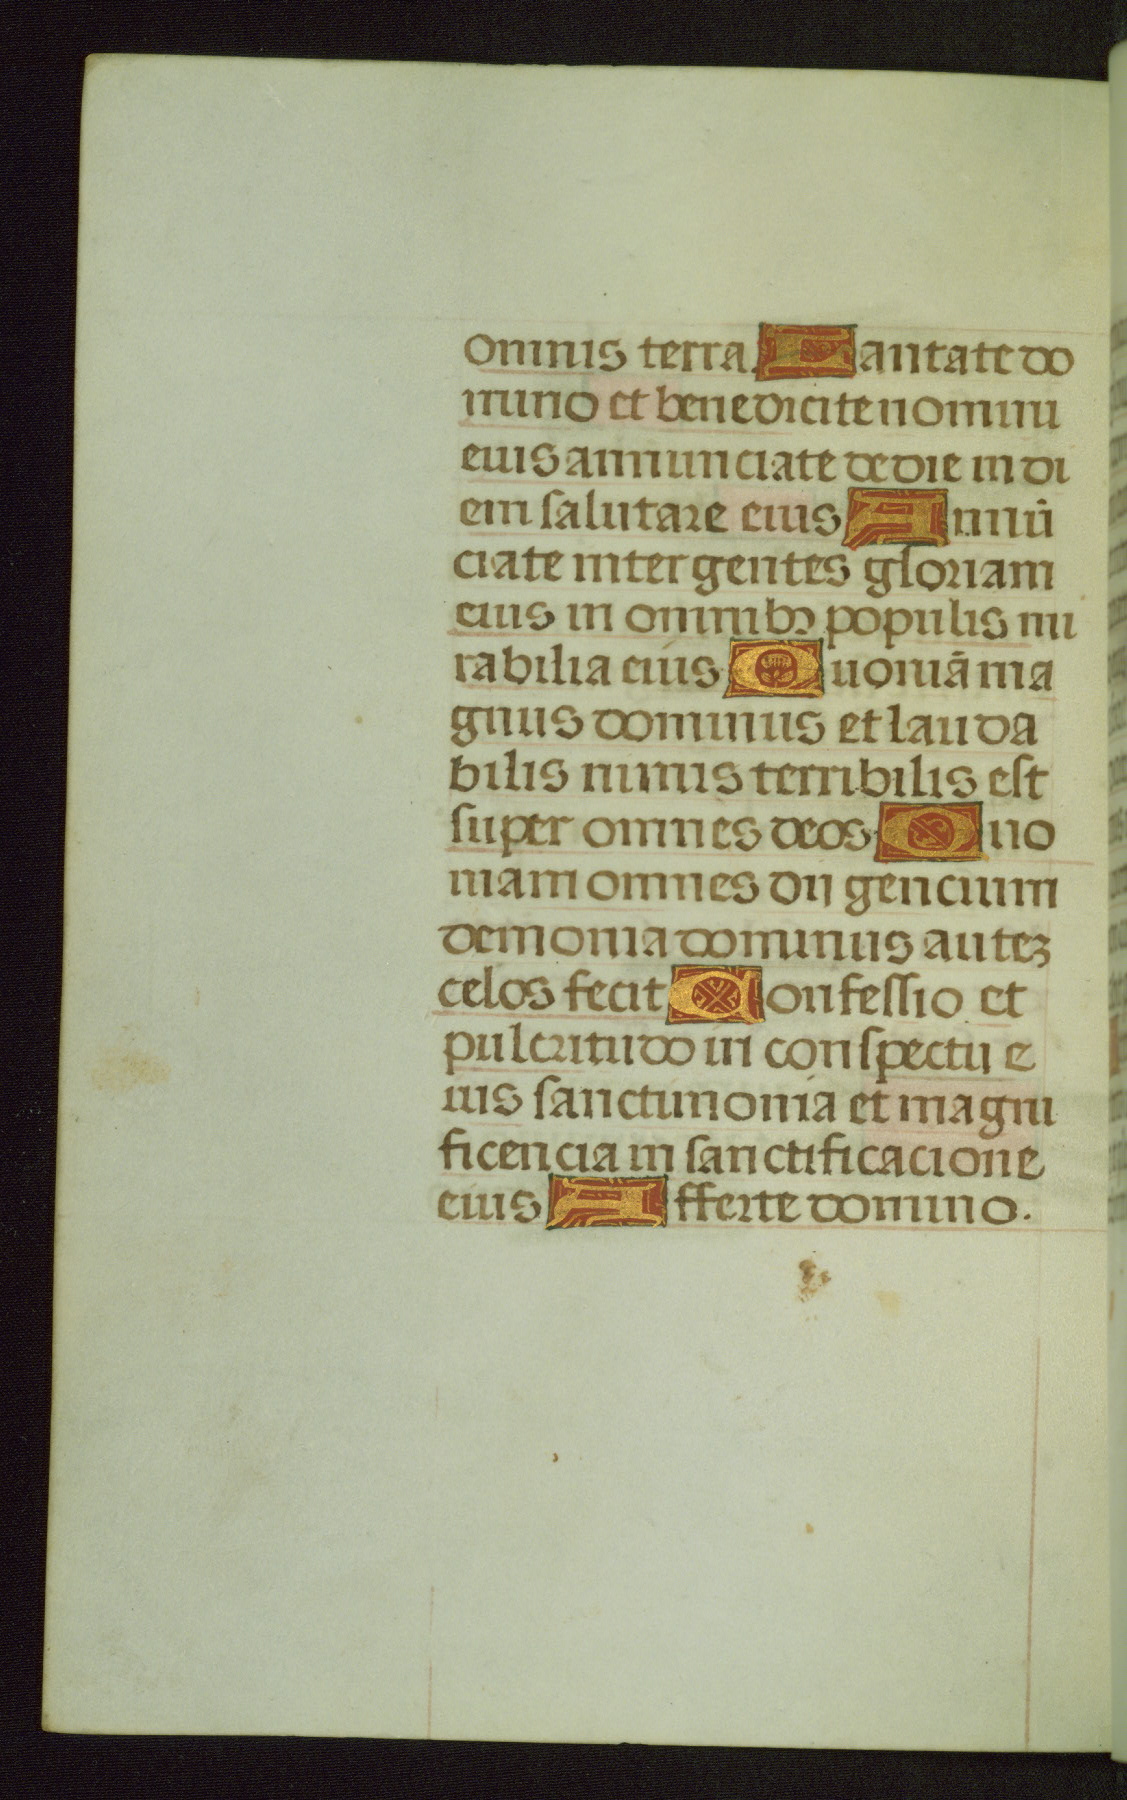 omnis terra. Cantate do
mino et benedicite nomini
eius annunciate de die in di
em salutare eius Annũ
ciate inter gentes gloriam
eius in omnibꝫ populis mi
rabilia eius Quoniã ma
gnus dominus et lauda
bilis nimis terribilis est
super omnes deos Quo
niam omnes dij gencium
demonia dominus auteꝫ
celos fecit Confessio et
pulcritudo in conspectu e
ius sanctimonia et magni
ficencia in sanctificacione
eius Afferte domino.